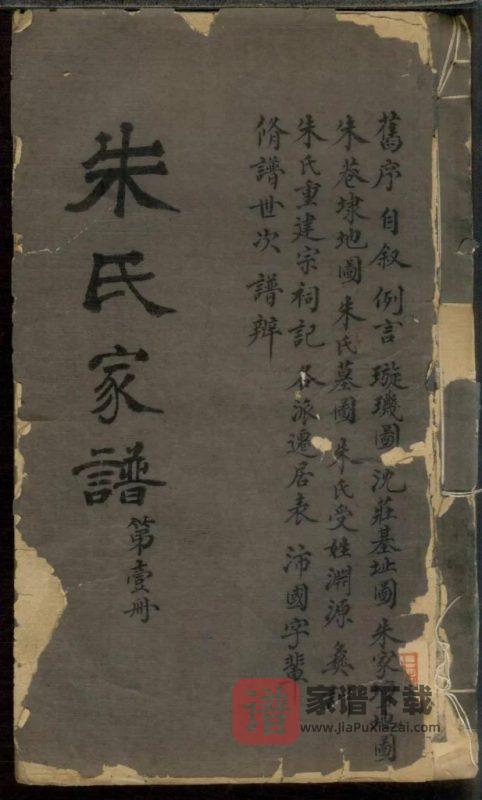 舊序 自叙 例言 璇璣圖 沈莊基址圖 朱家 地圖
朱巷埭地圖 朱氏墓圖 朱氏受姓淵源 彝
朱氏重建宗祠記 各派遷居表 沛國字輩
脩譜世次 譜辯
朱氏家譜
第壹册
譜 家谱下载
www.jiaPuXiazai.com